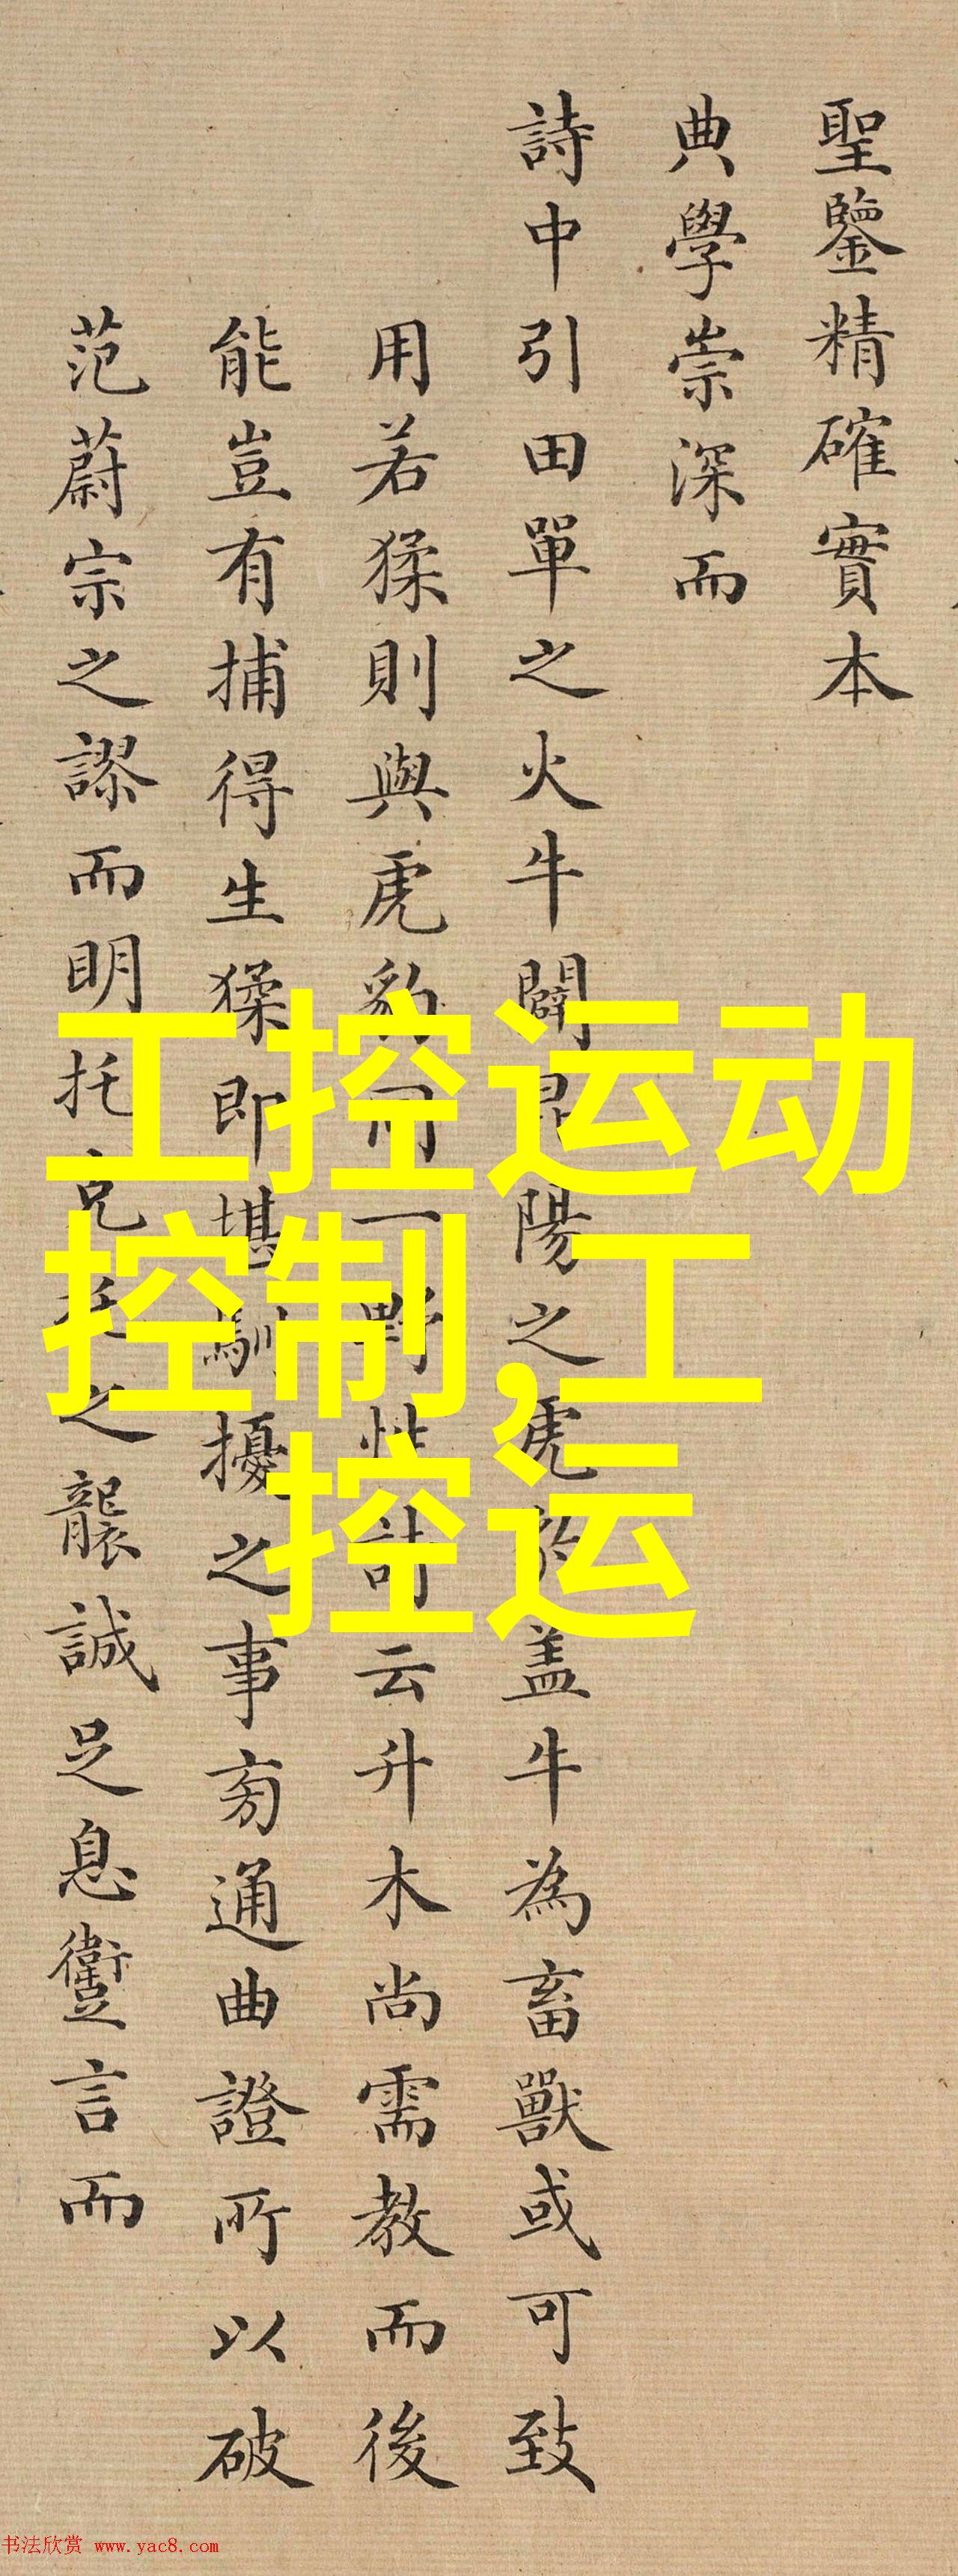 聖鑒精確實本
典學崇深而
詩中引田單之火牛闢昆陽之虎豹盖牛為畜獸或可致
用若猱則與虎豹同一野性詩云升木尚需教而後
能豈有捕得生猱即堪馴擾之事旁通曲證所以破
范蔚宗之謬而明托克托之襲誠足息讆言而
工控运动
控制,工
控运
书法欣赏 www.yac8.com